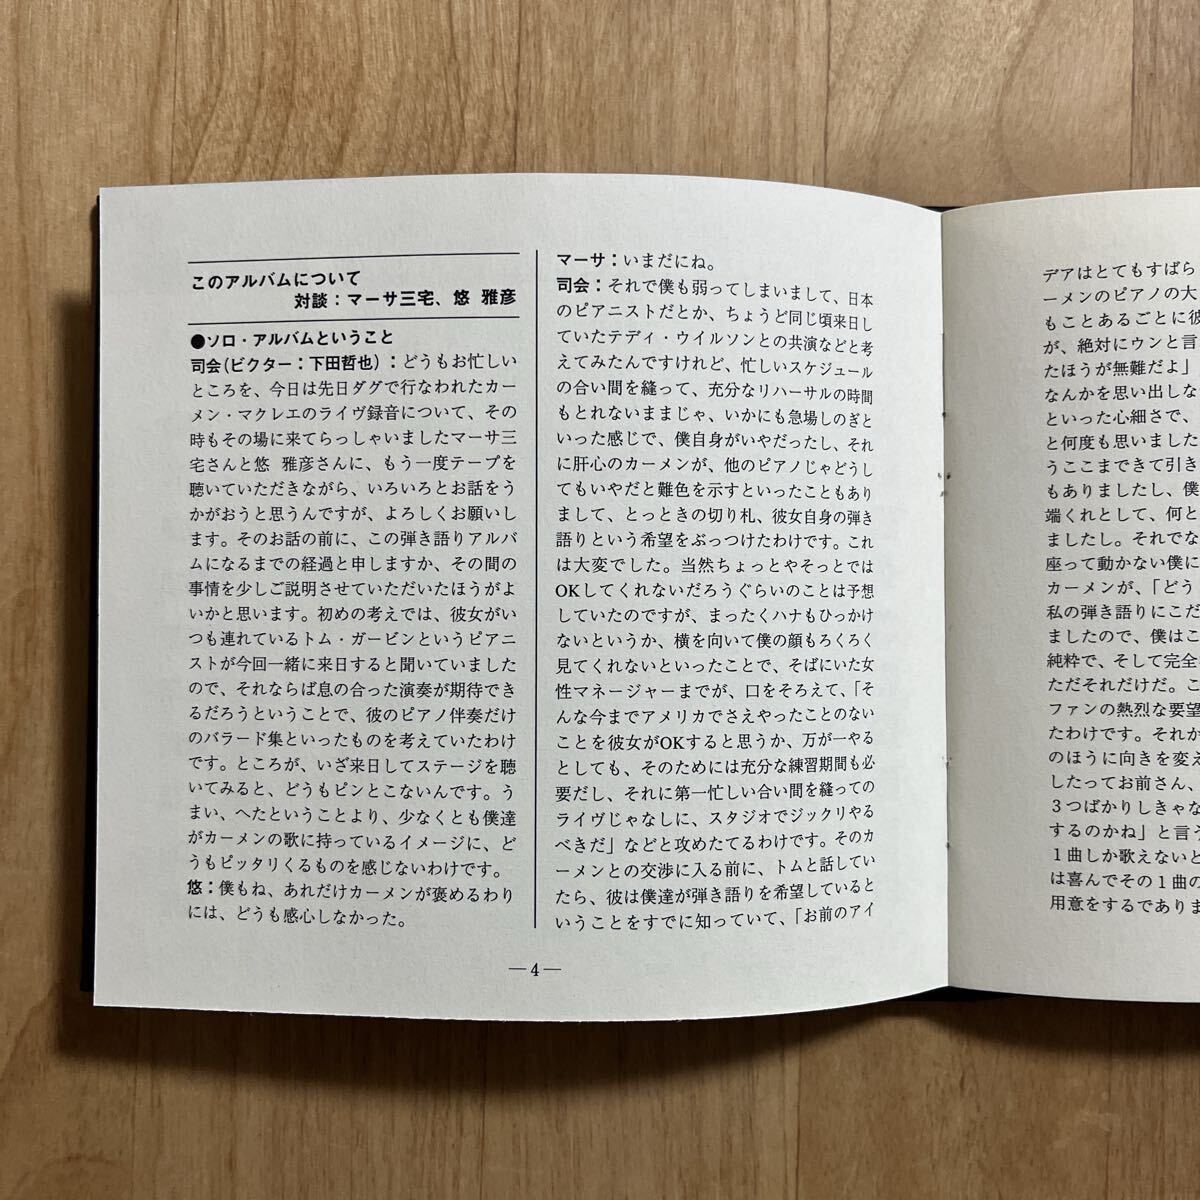 このアルバムについて
対談：マーサ三宅、悠 雅彦
●ソロ・アルバムということ
司会（ビクター：下田哲也）：どうもお忙しい
ところを、今日は先日ダグで行なわれたカー
メン・マクレエのライヴ録音について、その
時もその場に来てらっしゃいましたマーサ三
宅さんと悠 雅彦さんに、もう一度テープを
聴いていただきながら、いろいろとお話をう
かがおうと思うんですが、よろしくお願いし
ます。そのお話の前に、この弾き語りアルバ
ムになるまでの経過と申しますか、その間の
事情を少しご説明させていただいたほうがよ
いかと思います。初めの考えでは、彼女がい
つも連れているトム・ガービンというピアニ
ストが今回一緒に来日すると聞いていました
ので、それならば息の合った演奏が期待でき
るだろうということで、彼のピアノ伴奏だけ
のバラード集といったものを考えていたわけ
です。ところが、いざ来日してステージを聴
いてみると、どうもピンとこないんです。う
まい、へたということより、少なくとも僕達
がカーメンの歌に持っているイメージに、ど
うもピッタリくるものを感じないわけです。
悠：僕もね、あれだけカーメンが褒めるわり
には、どうも感心しなかった。
マーサ：いまだにね。
司会：それで僕も弱ってしまいまして、日本
のピアニストだとか、ちょうど同じ頃来日し
ていたテディ・ウイルソンとの共演などと考
えてみたんですけれど、忙しいスケジュール
の合い間を縫って、充分なリハーサルの時間
もとれないままじゃ、いかにも急場しのぎと
いった感じで、僕自身がいやだったし、それ
に肝心のカーメンが、他のピアノじゃどうし
てもいやだと難色を示すといったこともあり
まして、とっときの切り札、彼女自身の弾き
語りという希望をぶっつけたわけです。これ
は大変でした。当然ちょっとやそっとでは
OKしてくれないだろうぐらいのことは予想
していたのですが、まったくハナもひっかけ
ないというか、横を向いて僕の顔もろくろく
見てくれないといったことで、そばにいた女
性マネージャーまでが、口をそろえて、「そ
んな今までアメリカでさえやったことのない
ことを彼女がOKすると思うか、万が一やる
としても、そのためには充分な練習期間も必
要だし、それに第一忙しい合い間を縫っての
ライヴじゃなしに、スタジオでジックリやる
べきだ」などと攻めたてるわけです。そのカ
ーメンとの交渉に入る前に、トムと話してい
たら、彼は僕達が弾き語りを希望していると
いうことをすでに知っていて、「お前のアイ
—4—
デアはとてもすばら
ーメンのピアノの大
もことあるごとに彼
が、絶対にウンと言
たほうが無難だよ」
なんかを思い出しな
といった心細さで、
と何度も思いました
うここまできて引き
もありましたし、僕
端くれとして、何と
ましたし。それでな
座って動かない僕に
カーメンが、「どう
私の弾き語りにこだ
ましたので、僕はこ
純粋で、そして完全
ただそれだけだ。こ
ファンの熱烈な要望
たわけです。それか
のほうに向きを変え
したってお前さん、
３つばかりしきゃな
するのかね」と言う
１曲しか歌えないと
は喜んでその１曲の
用意をするでありま